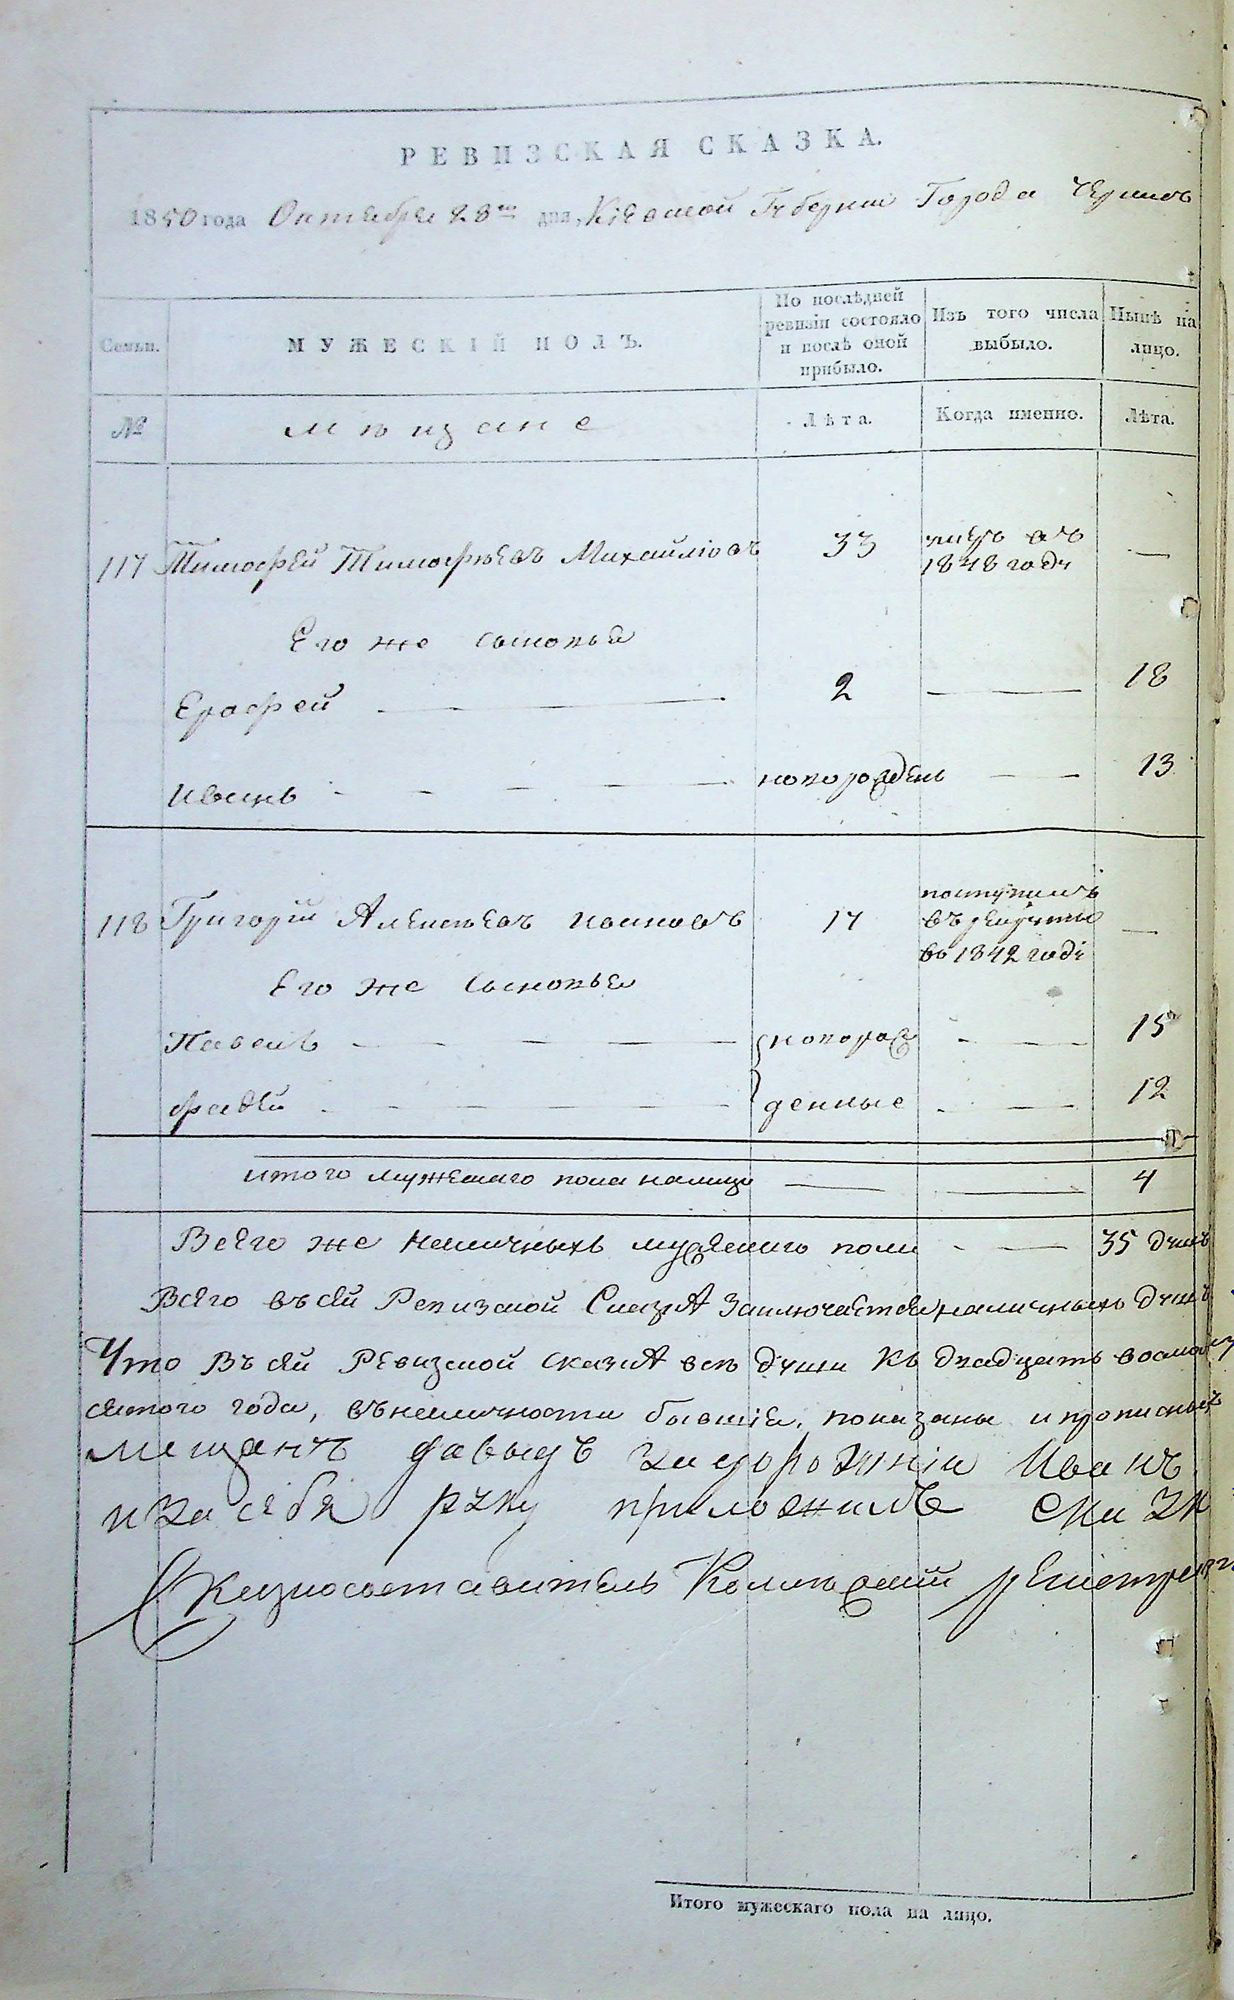 РЕВИЗСКАЯ СКАЗКА.
1850 года Октября 28го дня, Кіевской Губерніи Города
Семьи.
МУЖЕСКІЙ ПОЛЪ.
По послѣдней ревизіи состояло и послѣ оной прибыло.
Изъ того числа выбыло.
Нынѣ на лицо.
№
мѣщане
Лѣта.
Когда именно.
Лѣта.
117 Тимофей Тимофѣевъ Михайловъ 33 умеръ въ 1848 году —
Его же сыновья
Ерофей — 2 — 18
Иванъ — новорожденъ — 13
118 Григорій Алексѣевъ Ивановъ 17 поступилъ въ рекруты въ 1842 годѣ —
Его же сыновья
Павелъ — новорож — 15
Фадей — денные — 12
Итого мужескаго пола налицо — — 4
Всего же наличныхъ мужескаго пола — 35 душъ
Всего въ сей Ревизской Сказкѣ заключается наличныхъ душъ
Что въ сей Ревизской сказкѣ всѣ души къ двадцать
сятого года, въ наличности бывшіе, показаны и прописныхъ
мещанъ давыдъ Иванъ
и за себя руку приложилъ
Сказкосоставитель Коллежскій
Итого мужескаго пола на лицо.